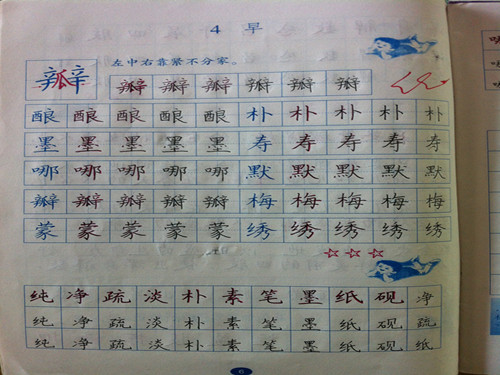 4 早
左中右靠紧不分家。
瓣 瓣 瓣 瓣 瓣 瓣 瓣
酿 酿 酿 酿 酿 朴 朴 朴 朴 朴
墨 墨 墨 墨 墨 寿 寿 寿 寿 寿
哪 哪 哪 哪 哪 默 默 默 默 默
瓣 瓣 瓣 瓣 瓣 梅 梅 梅 梅 梅
蒙 蒙 蒙 蒙 蒙 绣 绣 绣 绣 绣
纯 净 疏 淡 朴 素 笔 墨 纸 砚 净
纯 净 疏 淡 朴 素 笔 墨 纸 砚 疏
纯 净 疏 淡 朴 素 笔 墨 纸 砚 纸
6